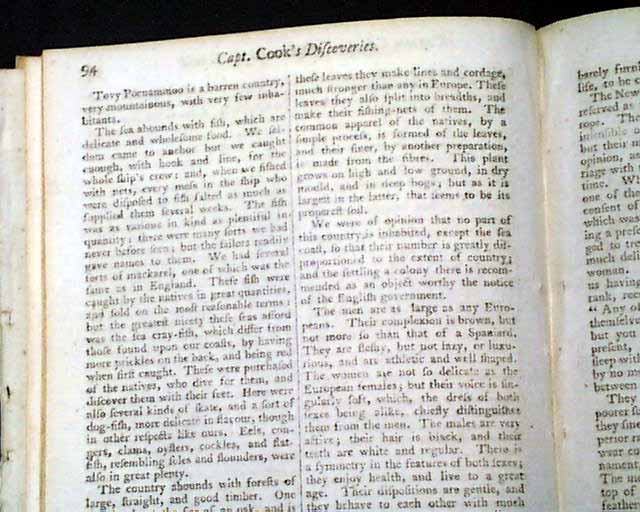 94
Capt. Cook's Diſcoveries.
Tovy Poenammoo is a barren country,
very mountainous, with very few inha-
bitants.
The ſea abounds with fiſh, which are
delicate and wholeſome food. We ſel-
dom came to anchor but we caught
enough, with hook and line, for the
whole ſhip's crew; and, when we fiſhed
with nets, every meſs in the ſhip who
were diſpoſed to fiſh ſalted as much as
ſupplied them ſeveral weeks. The fiſh
was as various in kind as plentiful in
quantity; there were many ſorts we had
never before ſeen; but the ſailors readily
gave names to them. We had ſeveral
ſorts of mackarel, one of which was the
ſame as in England. Theſe fiſh were
caught by the natives in great quantities,
and ſold on the moſt reaſonable terms;
but the greateſt nicety theſe ſeas afford
was the ſea cray-fiſh, which differ from
thoſe found upon our coaſts, by having
more prickles on the back, and being red
when firſt caught. Theſe were purchaſed
of the natives, who dive for them, and
diſcover them with their feet. Here were
alſo ſeveral kinds of ſkate, and a ſort of
dog-fiſh, more delicate in flavour, though
in other reſpects like ours. Eels, con-
gers, clams, oyſters, cockles, and flat-
fiſh, reſembling ſoles and flounders, were
alſo in great plenty.
The country abounds with foreſts of
large, ſtraight, and good timber. One
of an oak, and is
theſe leaves they make lines and cordage,
much ſtronger than any in Europe. Theſe
leaves they alſo ſplit into breadths, and
make their fiſhing-nets of them. The
common apparel of the natives, by a
ſimple proceſs, is formed of the leaves,
and their finer, by another preparation,
is made from the fibres. This plant
grows on high and low ground, in dry
mould, and in deep bogs; but as it is
largeſt in the latter, that ſeems to be its
propereſt ſoil.
We were of opinion that no part of
this country is inhabited, except the ſea
coaſt, ſo that their number is greatly diſ-
proportioned to the extent of country;
and the ſettling a colony there is recom-
mended as an object worthy the notice
of the Engliſh government.
The men are as large as any Euro-
peans. Their complexion is brown, but
not more ſo than that of a Spaniard.
They are fleſhy, but not lazy, or luxu-
rious, and are athletic and well ſhaped.
The women are not ſo delicate as the
European females; but their voice is ſin-
gularly ſoft, which, the dreſs of both
ſexes being alike, chiefly diſtinguiſhes
them from the men. The males are very
active; their hair is black, and their
teeth are white and regular. There is
a ſymmetry in the features of both ſexes;
they enjoy health, and live to a great
age. Their diſpoſitions are gentle, and
they behave to each other with much
barely furni
life, to be
The New
reſerved as
rope. The
but their m
opinion, a
riage with
time. Wh
one of the
conſent of
which wa
ing a preſe
ged to tre
much deli
woman.
us having
rank, req
"Any of
themſelve
but you
preſent,
ſleep wit
by no me
between
They
poorer f
they ſin
perior
wear co
nament
The m
top of